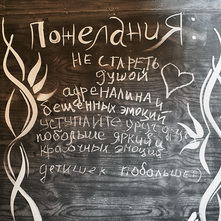 Пожелания:
НЕ СТАРЕТЬ
душой
адреналина и
бешенных эмоций
уступайте друг другу
побольше ярких и
красочных эмоций
детишек побольше:)